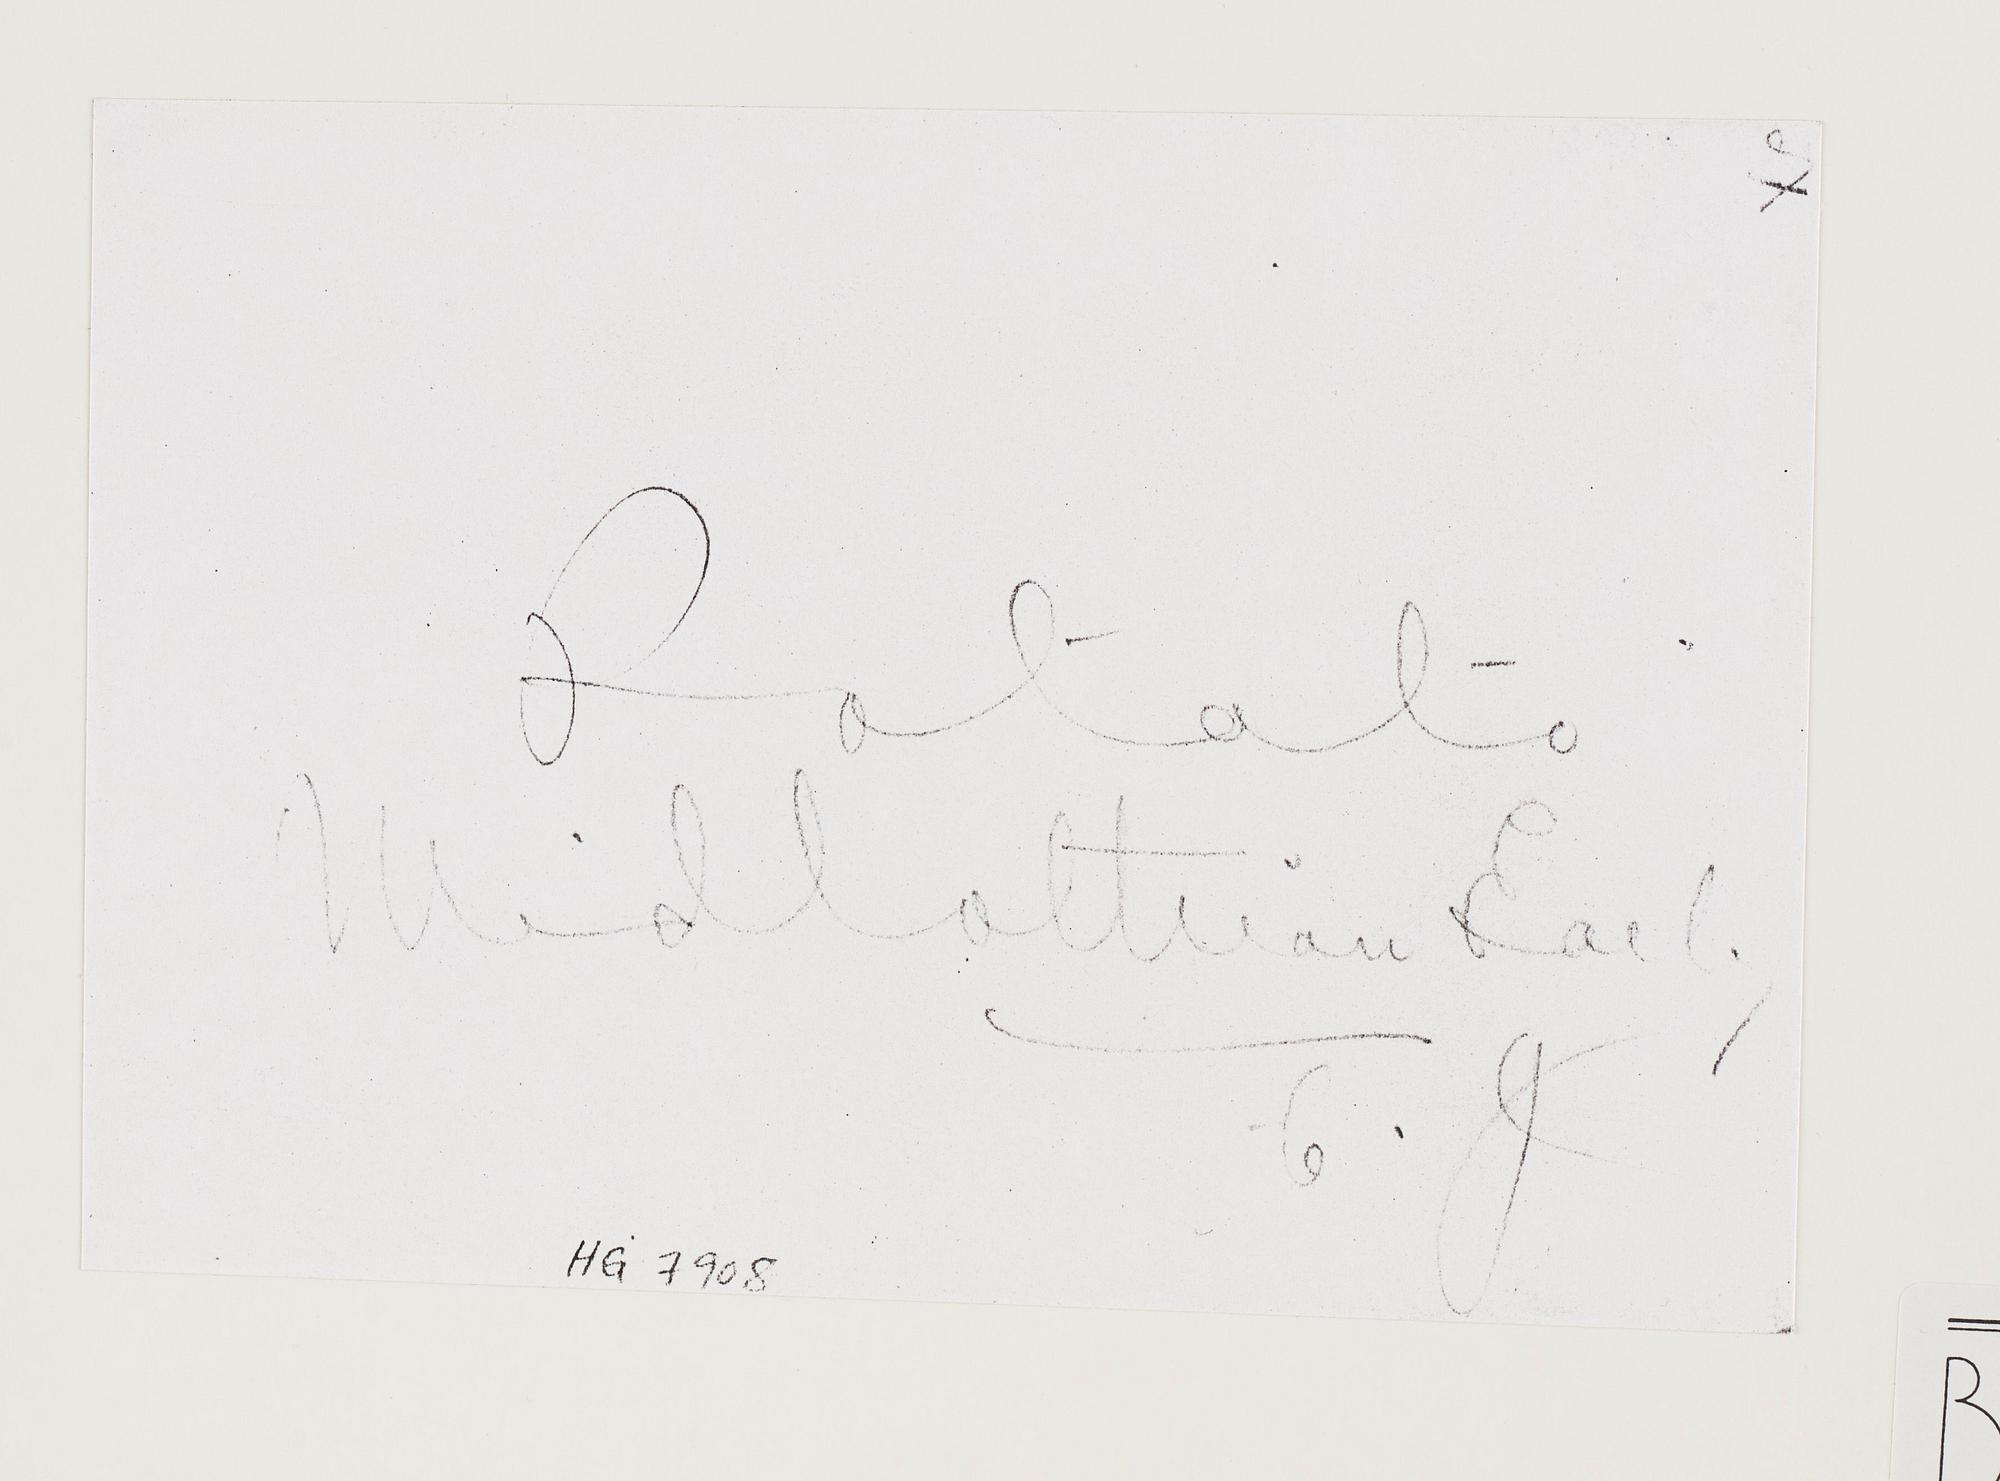 Potato
Midlothian Early
C. J
HG 7908